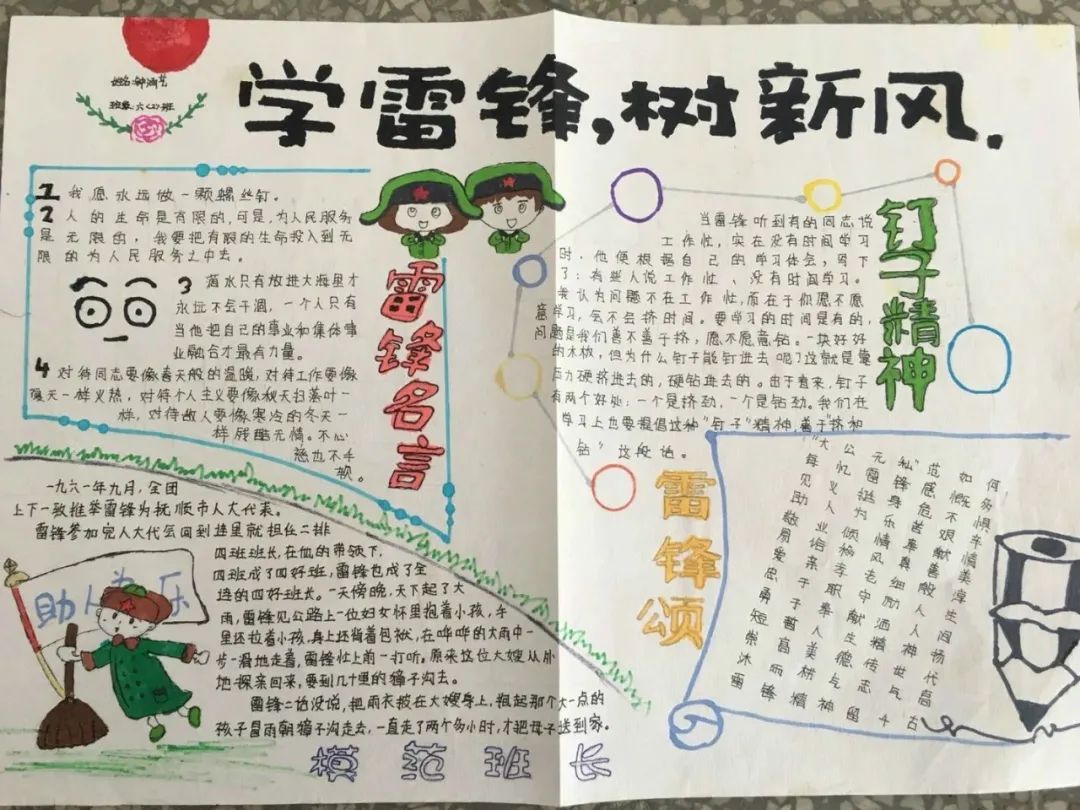 学雷锋,树新风.
姓名:钟涵艺
班级:六(2)班
1 我愿永远做一颗螺丝钉。
2 人的生命是有限的,可是,为人民服务
是无限的,我要把有限的生命投入到无
限的为人民服务之中去。
3 滴水只有放进大海里才
永远不会干涸,一个人只有
当他把自己的事业和集体事
业融合才最有力量。
4 对待同志要像春天般的温暖,对待工作要像
夏天一样火热,对待个人主义要像秋天扫落叶一
样,对待敌人要像寒冷的冬天一
样残酷无情。不心
慈也不手
软。
雷锋名言
当雷锋听到有的同志说
工作忙,实在没有时间学习
时,他便根据自己的学习体会,写下
了:有些人说工作忙、没有时间学习。
我认为问题不在工作忙,而在于你愿不愿
意学习,会不会挤时间。要学习的时间是有的,
问题是我们善不善于挤,愿不愿意钻。一块好好
的木板,但为什么钉子能钉进去呢?这就是靠
压力硬挤进去的,硬钻进去的。由于看来,钉子
有两个好处:一个是挤劲,一个是钻劲。我们在
学习上也要提倡这种"钉子"精神,善于"挤和
钻"这段话。
钉子精神
一九六一年九月,全团
上下一致推举雷锋为抚顺市人大代表。
雷锋参加完人大代会回到连里就担任二排
四班班长,在他的带领下,
四班成了四好班,雷锋也成了全
连的四好班长。一天傍晚,天下起了大
雨,雷锋见公路上一位妇女怀里抱着小孩,手
里还拉着小孩,身上还背着包袱,在哗哗的大雨中一
步一滑地走着,雷锋忙上前一打听。原来这位大嫂从外
地探亲回来,要到几十里的樟子沟去。
雷锋二话没说,把雨衣披在大嫂身上,抱起那个大一点的
孩子冒雨朝樟子沟走去,一直走了两个多小时,才把母子送到家。
助人为乐
模范班长
雷锋颂
雷锋精神留千古